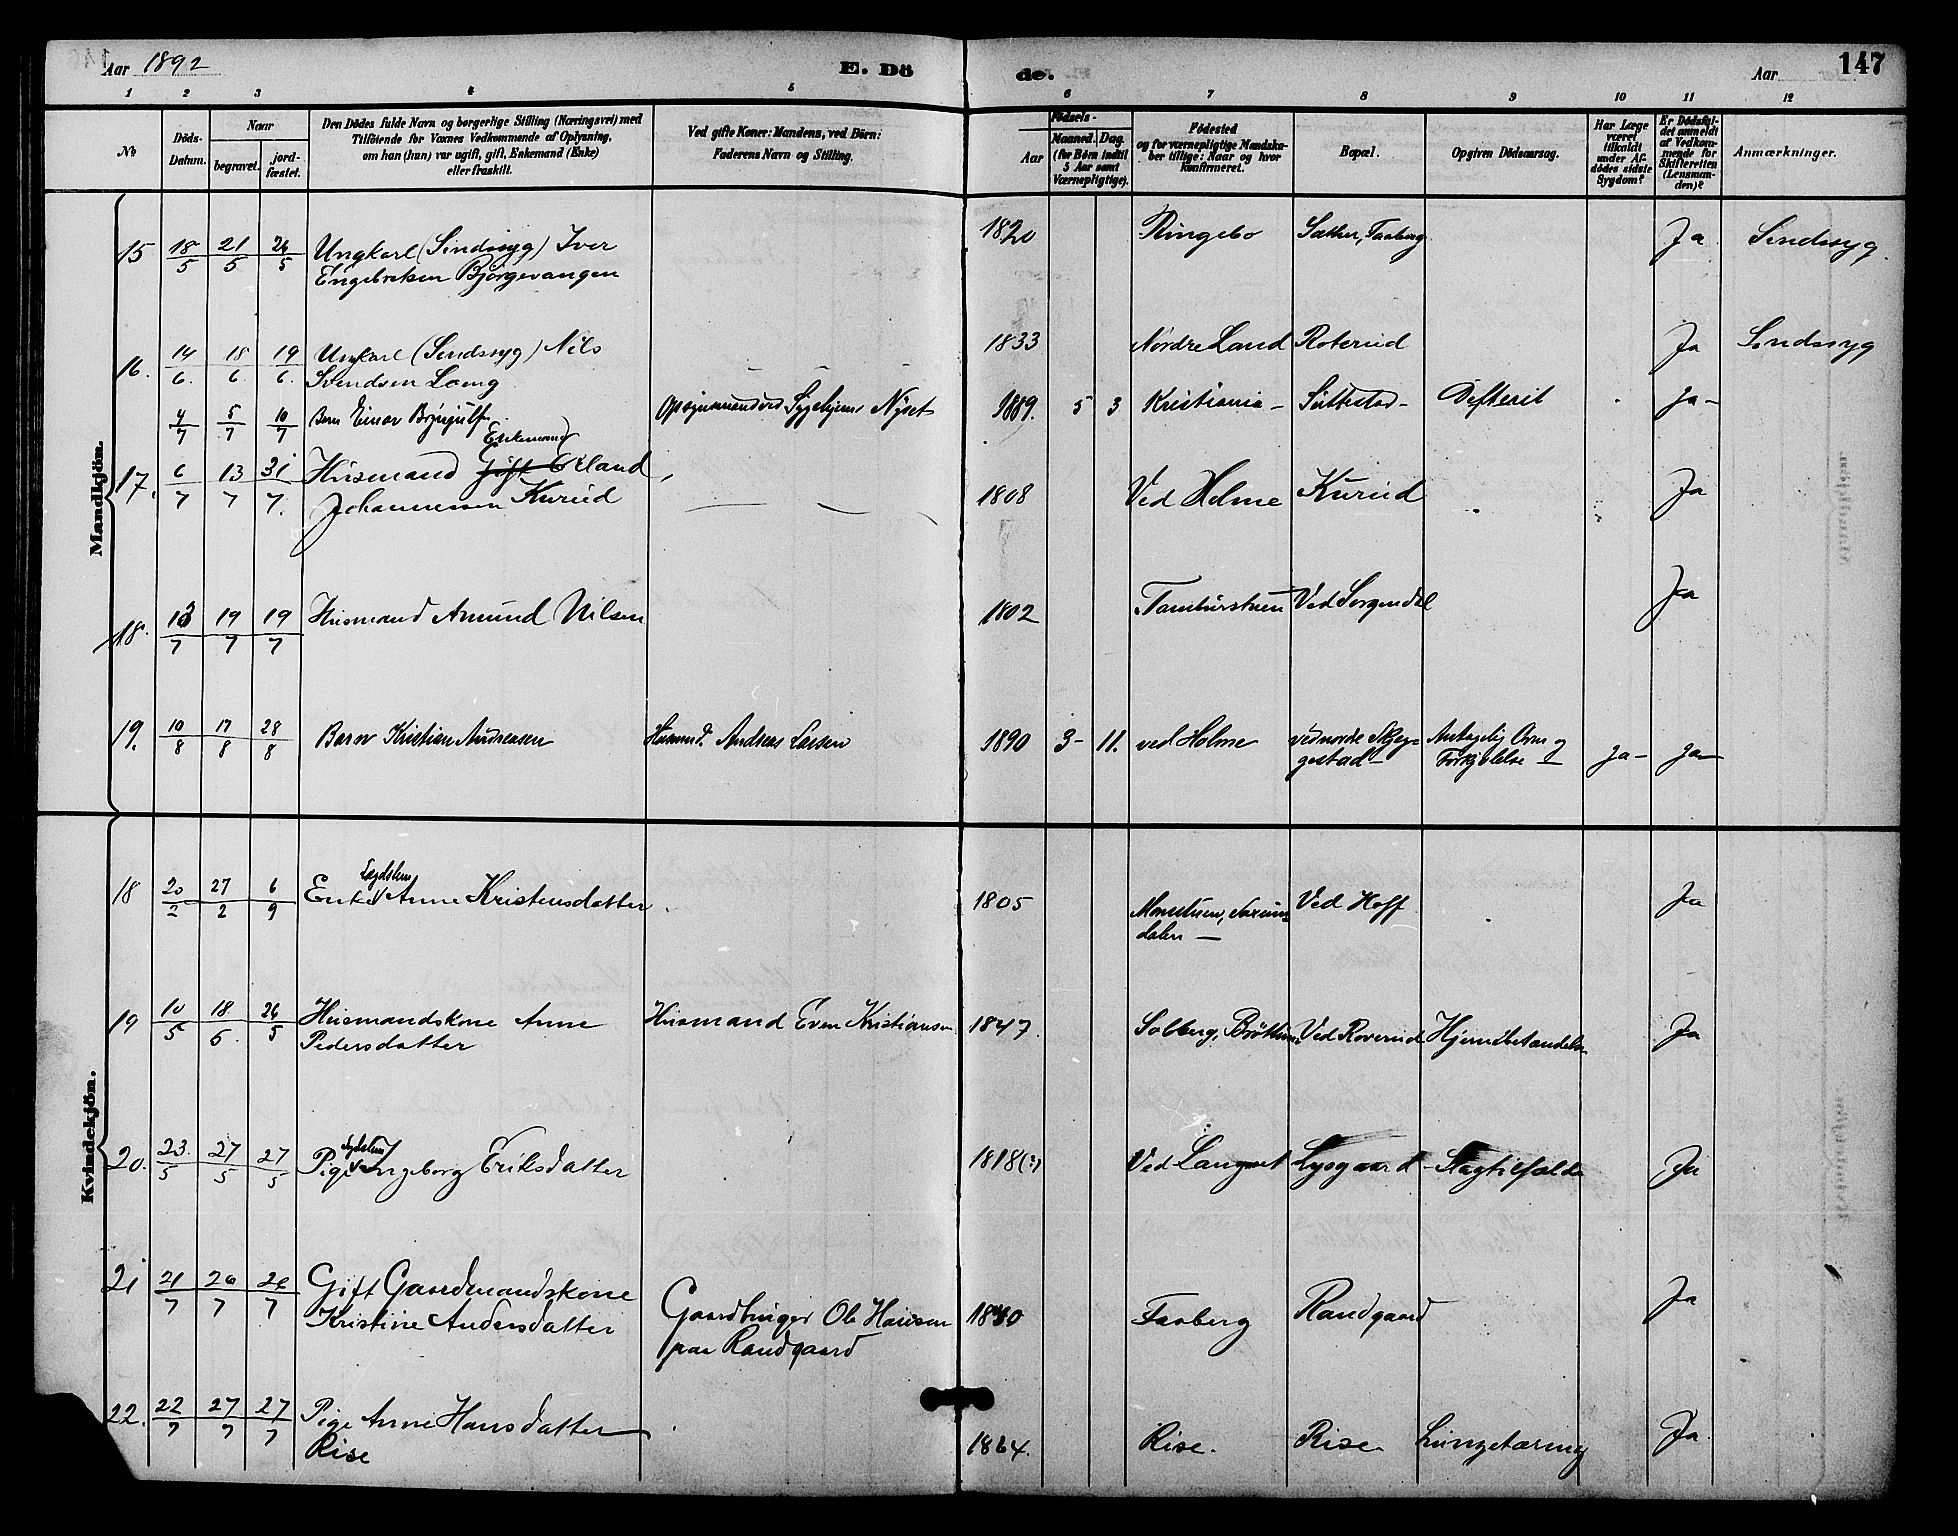 Aar 1892
E. Dö
de.
Aar
147
1 2 3 4 5 6 7 8 9 10 11 12
№
Döds-Datum.
Naar
begravet.
jord-fæstet.
Den Dödes fulde Navn og borgerlige Stilling (Næringsvei) med
Tilföiende for Voxnes Vedkommende af Oplysning,
om han (hun) var ugift, gift, Enkemand (Enke)
eller fraskilt.
Ved gifte Koner: Mandens, ved Börn:
Faderens Navn og Stilling.
Födsels-
Aar
Maaned.
Dag.
(for Börn indtil
5 Aar samt
Værnepligtige).
Födested
og for værnepligtige Mandska-
ber tillige: Naar og hvor
konfirmeret.
Bopæl.
Opgiven Dödsaarsag.
Har Læge
været
tilkaldt
under Af-
dödes sidste
Sygdom?
Er Dödsfal-
det anmeldt
af Vedkom-
mende for
Skifteretten
(Lensman-
den)?
Anmærkninger.
Mandkjön.
15 18/5 21/5 26/5 Ungkarl (Sindssyg) Iver
Engebretsen Bjørgevangen
1820 Ringebo Sæther, Faaberg Ja Sindssyg.
16. 14/6. 18/6. 19/6. Ungkarl (Sindssyg) Nils
Svendsen Loeng
1833 Nordre Land Roterud Ja Sindssyg
4/7 5/7 10/7 Barn Einar Brynjulf Opsynsmand ved Sygehjem Nyset 1889. 5 3 Kristiania - Suttestad - Defterit Ja -
Enkemand
17. 6/7 13/7 31/7. Husmand Gift Erland
Johannessen Kurud
1808 Ved Holme Kurud Ja
18. 13/7 19/7 19/7 Husmand Amund Nilsen 1802 Tamburstuen Ved Sorgendal Ja
19. 10/8 17/8 28/8 Barn Kristian Andreasen Husmd. Andreas Larsen 1890 3- 11. ved Holme ved nordre Skjeg-
gestad - Antagelig Orm og
Forkjølelse - Ja - Ja -
Kvindekjön.
Lægdslem
18 20/2 27/2 6/9 Enke Anne Kristensdatter. 1805 Ved Hoff Ja
dalen -
19 10/5 18/5. 26/5 Husmandskone Anne
Pedersdatter
Husmand Even Kristiansen 1847. Solberg, Brøttum. Ved Roverud Hjernebetændelse Ja
Lægdslem
20. 23./5 27/5 27/5 Pige Ingeborg Eriksdatter 1818(?) Ved Langset Lysgaard - Slagtilfælde Ja
21 21/7 26/7 26/7 Gift Gaardmandskone
Kristine Andersdatter
Gaardbruger Ole Hansen
paa Randgaard
1840 Faaberg Randgaard Ja
22. 22/7 27/7 27/7 Pige Anne Hansdatter
Rise
1864. Rise. Rise. Lungetæring Ja